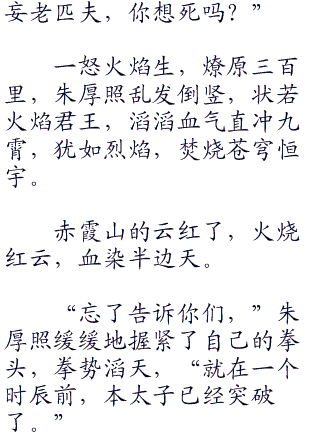 妄老匹夫，你想死吗？”
一怒火焰生，燎原三百
里，朱厚照乱发倒竖，状若
火焰君王，滔滔血气直冲九
霄，犹如烈焰，焚烧苍穹恒
宇。
赤霞山的云红了，火烧
红云，血染半边天。
“忘了告诉你们，”朱
厚照缓缓地握紧了自己的拳
头，拳势滔天，“就在一个
时辰前，本太子已经突破
了。”